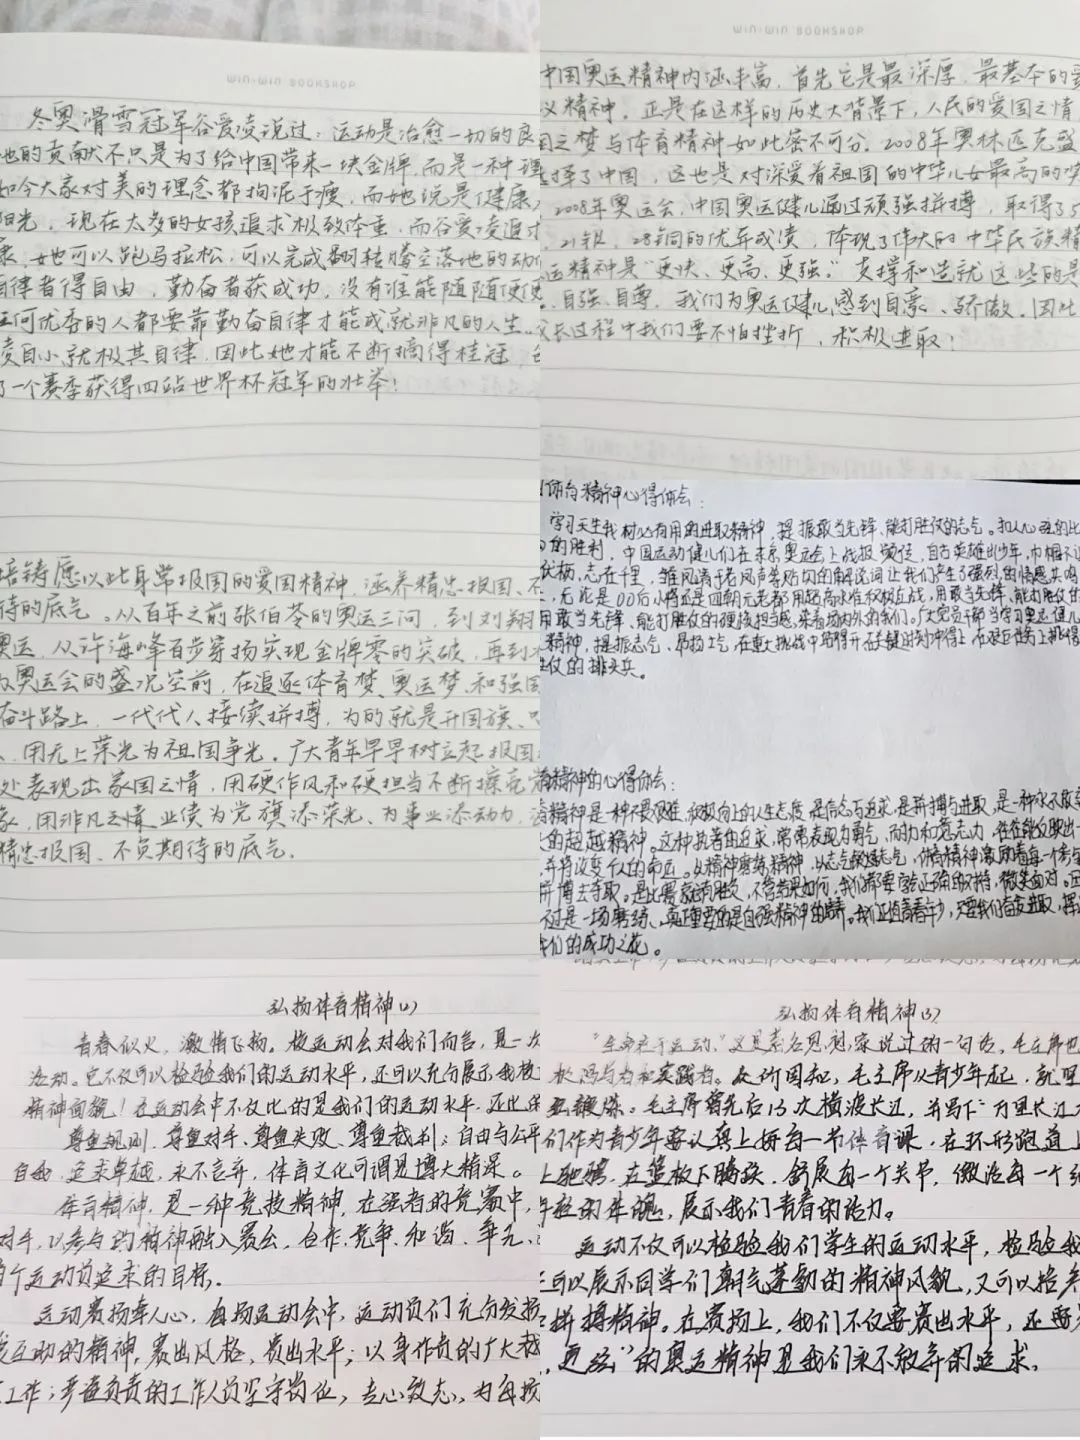 WIN-WIN BOOKSHOP
冬奥滑雪冠军谷爱凌说过：运动是治愈一切的良
她的贡献不只是为了给中国带来一块金牌，而是一种理
如今大家对美的理念都拘泥于瘦，而她说是健康，
阳光，现在太多的女孩追求极致体重，而谷爱凌追求
康，她也可以跑马拉松，可以完成翻转腾空落地的动作
自律者得自由，勤奋者获成功，没有谁能随随便便
任何优秀的人都要靠勤奋自律才能成就非凡的人生
凌自小就极其自律，因此她才能不断摘得桂冠，
了一个赛季获得四站世界杯冠军的壮举！
培铸愿以此身掌报国的爱国精神，涵养精忠报国、不
待的底气。从百年之前张伯苓的奥运三问，到刘翔
奥运，从许海峰百步穿扬实现金牌零的突破，再到
奥运会的盛况空前，在追逐体育梦、奥运梦、和强国
奋斗路上，一代代人接续拼搏，为的就是升国旗、
、用无上荣光为祖国争光。广大青年早早树立起报国
处表现出家国之情，用硬作风和硬担当不断擦亮
家，用非凡之情、业绩为党旗添荣光、为事业添动力，
精忠报国、不负期待的底气。
WIN-WIN BOOKSHOP
中国奥运精神内涵丰富，首先它是最深厚、最基本的爱
义精神。正是在这样的历史大背景下，人民的爱国之情
国之梦与体育精神如此密不可分。2008年奥林匹克盛
择了中国，这也是对深爱着祖国的中华儿女最高的
2008年奥运会，中国奥运健儿通过顽强拼搏，取得了5
，21银，28铜的优异成绩，体现了伟大的中华民族精
运精神是“更快、更高、更强。”支撑和造就这些的是
、自强、自尊，我们为奥运健儿感到自豪、骄傲。因此
长过程中我们要不怕挫折，积极进取！
体育精神心得体会：
学习天生我材必有用的进取精神，提振敢当先锋、能打胜仗的志气。扣人心弦的比
的胜利，中国运动健儿们在东京奥运会上战报频传，自古英雄出少年，巾帼不
伏枥，志在千里，雏凤清于老凤声等贴切的解说词让我们产生了强烈的情感共鸣
，无论是00后小将还是四朝元老都用超高水准权极应战，用敢当先锋、能打胜仗的
用敢当先锋、能打胜仗的硬核担当感染着场内外的我们。广大党员干部当学习奥运健儿
精神，提振志气、昂扬士气，在重大挑战中豁得开，在关键时刻冲得上，在艰巨任务上挑得
胜仗的排头兵。
精神的心得体会：
精神是一种不畏艰难、积极向上的人生态度，是信念与追求，是拼搏与进取，是一种永不服
的超越精神。这种执着的追求，常常表现为勇气、耐力和意志力，往往能反映出一
并将改变个人的命运。以精神磨练精神，以志气锻造志气，体育精神激励着每一个
拼搏去争取。是比赛就有胜败，不管结果如何，我们都要端正确的取持，微笑面对。
过是一场磨练、真理要的是自强精神的培养。我们正值青春年少，只要我们奋发进取，
我们的成功之花。
弘扬体育精神(2)
青春似火，激情飞扬。校运动会对我们而言，是一次
活动。它不仅可以检验我们的运动水平，还可以充分展示我校
精神面貌！在运动会中不仅比的是我们的运动水平，还比的
尊重规则、尊重对手、尊重失败、尊重裁判；自由与公平
自我，追求卓越，永不言弃，体育文化可谓是博大精深。
体育精神，是一种竞技精神，在强者的竞赛中，
对手，以参与的精神融入赛会，合作、竞争、和谐、争先、
个运动员追求的目标。
运动赛场牵人心，每场运动会中，运动员们充分发扬
互助的精神，赛出风格，赛出水平；以身作责的广大裁
工作；严谨负责的工作人员坚守岗位，专心致志，为每场
弘扬体育精神(3)
“生命在于运动，”这是著名思想家说过的一句话，毛主席也
极倡导者和实践者。众所周知，毛主席从青少年起，就坚
锻炼。毛主席曾先后13次横渡长江，并写下“万里长江
们作为青少年要认真上好每一节体育课，在环形跑道上
上驰骋，在篮板下腾跃，舒展每一个关节，激活每一个细
年轻的体魄，展示我们青春的活力。
运动不仅可以检验我们学生的运动水平，检验我
可以展示同学们朝气蓬勃的精神风貌，又可以培养
拼搏精神。在赛场上，我们不仅要赛出水平，还要
，更强”的奥运精神是我们永不放弃的追求。